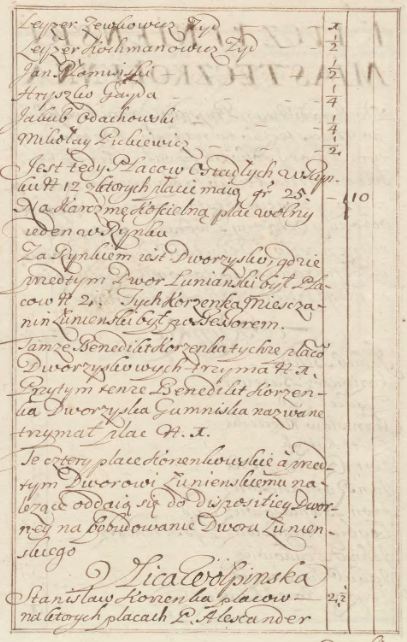 Leyzer Zewkowicz Żyd - 1
Leyzer Kochmanowicz Żyd - 1/2
Jan - 1/2
Hryszko Gayda - 1/4
Jakub Odachowski - 1/4
Mikołay Pickiewicz - - 1/2
Jest tedy Placow Osiadłych w Ryn-
ku N 12 z ktorych płacić maią gr 25. - 10
Na Karczmę Kościelną plac wolny
ieden w Rynku
Za Rynkiem iest Dworzysko, gdzie
przedtym Dwor Łunianski był Pla-
cow N 2. Tych Korzenka Miescza-
nin Łunienski był possessorem.
Tamże Benedikt Korzenka tychże placo
Dworzyskowych trzyma N 1.
Przytym tenże Benedikt Korzen-
ka Dworzyska Gumniska nazwane
trzymał plac N. 1.
Te cztery place Korzenkowskie a przed-
tym Dworowi Łunienskiemu na-
leżące oddaią się do Dispositicy Dwor-
ney na pobudowanie Dworu Łunien-
skiego
Ulica Wołpinska
Stanisław Korzenka placow - 2 1/2
na ktorych placach P. Alexander